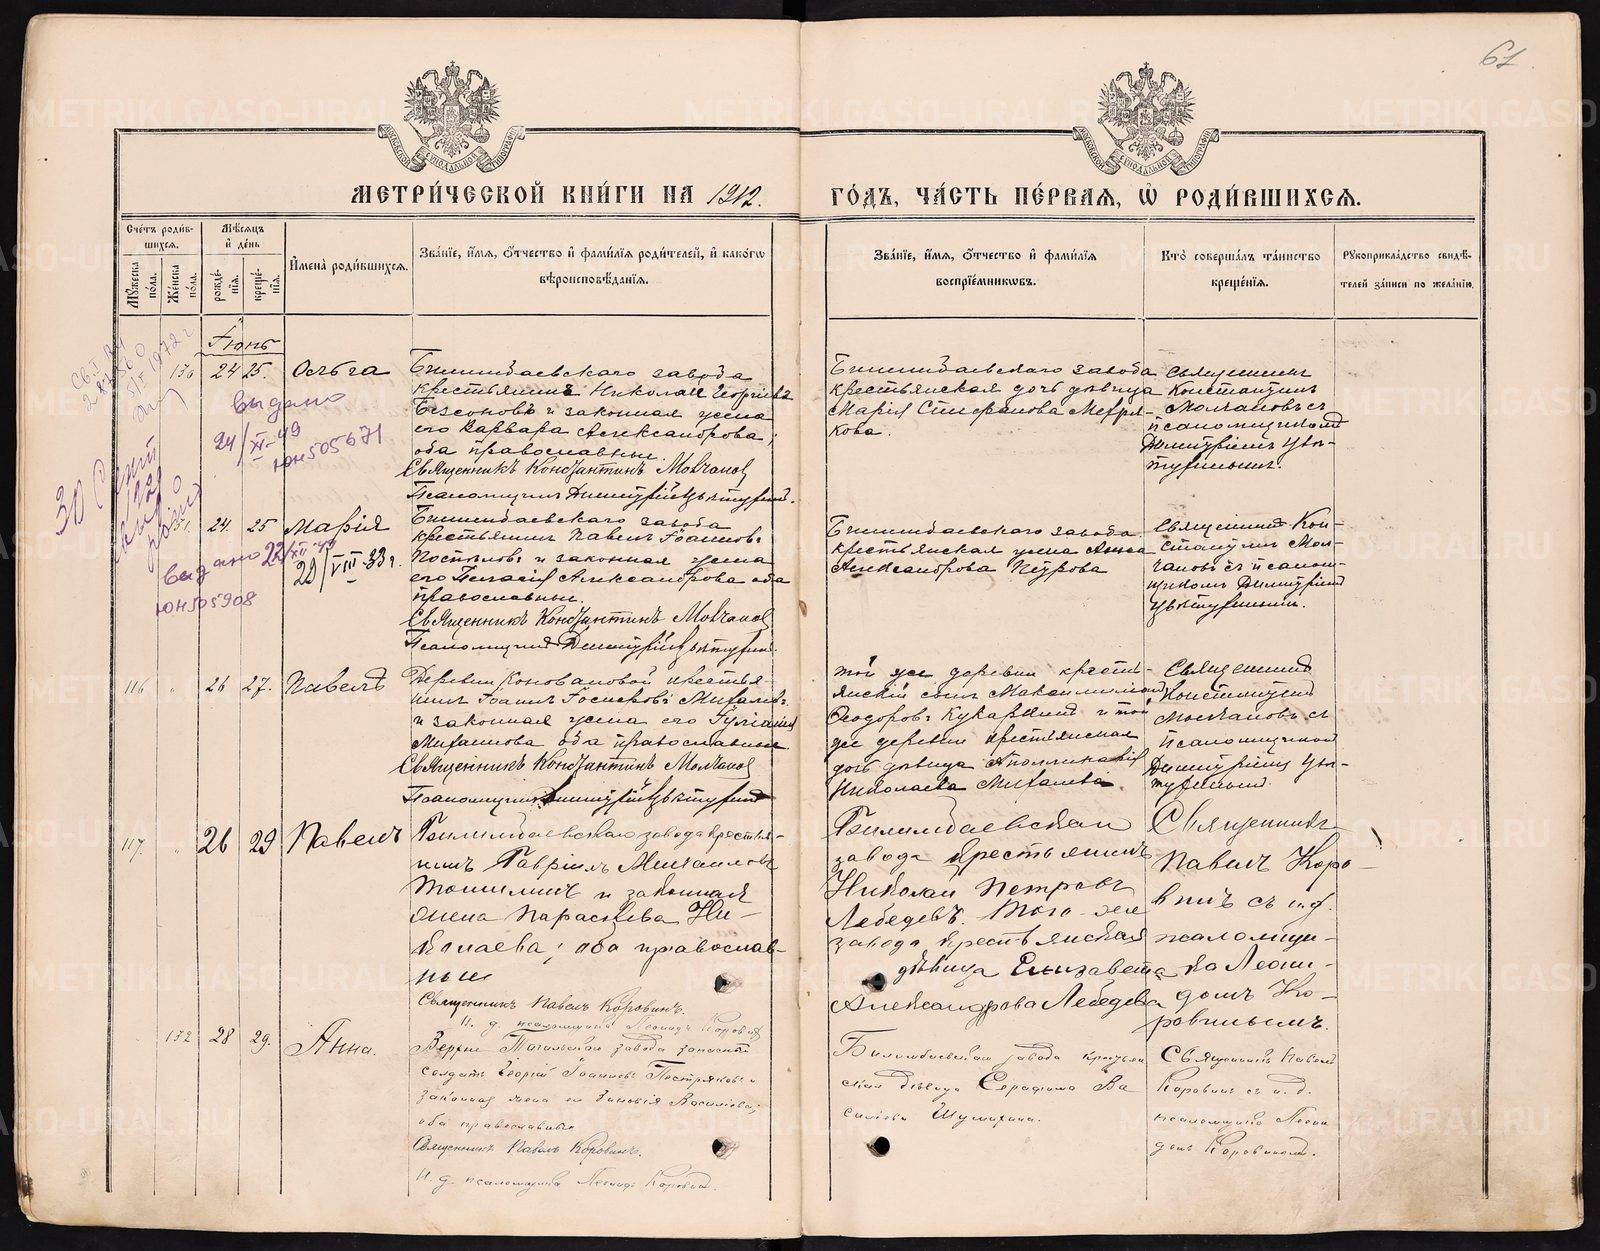 61
МЕТРИ́ЧЕСКОЙ КНИ́ГИ НА 1912.
ГО́ДЪ, ЧА́СТЬ ПЕ́РВАЯ, Ѡ РОДИ́ВШИХСЯ.
Сче́тъ роди́в-
шихся.
Му́жеска по́ла.
Же́нска по́ла.
Мѣ́сяцъ и де́нь
рожде́нія.
креще́нія.
И҆мена̀ роди́вшихся.
Зва́нїе, и҆́мя, ѻ҆́тчество и҆ фами́лїя роди́телей, и҆ како́гѡ
вѣроисповѣ́данїя.
Зва́нїе, и҆́мя, ѻ҆́тчество и҆ фами́лїя
воспрїе́мникѡвъ.
Кто̀ соверша́лъ та́инство
креще́нїя.
Рꙋкоприкла́дство свидѣ́-
телей за́писи по жела́нїю.
Іюнь
130 24 25. Ольга
Билимбаевскаго завода
крестьянинъ Николай Георгіевъ
Безсоновъ и законная жена
его Варвара Александрова,
оба православные.
Священникъ Константинъ Молчановъ
Псаломщикъ Димитрій
Билимбаевскаго завода
крестьянская дочь дѣвица
Марія Стефанова Мезря-
кова.
Священникъ
Константинъ
Молчановъ съ
псаломщикомъ
Димитріемъ
выдано
24/XI-49
ЮН505671
131. 24. 25 Марія
Билимбаевскаго завода
крестьянинъ Павелъ Іоанновъ
и законная жена
его Пелагія Александрова оба
православные.
Священникъ Константинъ Молчановъ
Псаломщикъ Димитрій
Билимбаевскаго завода
крестьянская жена Анна
Александрова Петрова
Священникъ Кон-
стантинъ Мол-
чановъ съ псалом-
щикомъ Димитріемъ
выдано 22/XII-49
29/VIII-33 г.
ЮН505908
116 " 26 27. Павелъ
Деревни Коноваловой крестья-
нинъ Іоаннъ Іосифовъ Михалевъ
и законная жена его Іуліанія
Михаилова оба православные
Священникъ Константинъ Молчановъ
Псаломщикъ Димитрій
той же деревни крестья-
янскій сынъ Максимиліанъ
Ѳеодоровъ и той
же деревни крестьянская
дочь дѣвица Аполлинарія
Николаева Михалева.
Священникъ
Константинъ
Молчановъ съ
псаломщикомъ
Димитріемъ
117. " 26 29 Павелъ
Билимбаевскаго завода крестья-
нинъ Гавріилъ Михаиловъ
Томилинъ и законная
жена Параскева Ни-
колаева, оба православ-
ные
Священникъ Павелъ Коровинъ.
И. д. псаломщика Леонидъ Коровинъ
Билимбаевскаго
завода крестьянинъ
Николай Петровъ
Лебедевъ. Того-же
завода крестьянская
дѣвица Елизавета
Александрова Лебедева
Священникъ
Павелъ Коро-
винъ съ и. д.
псаломщи-
ка Леони-
домъ Ко-
ровинымъ.
132 28 29. Анна.
Верхне Тагильскаго завода запасный
солдатъ Георгій Іоанновъ Пестряковъ и
законная жена его Зиновія Василіева,
оба православные
Священникъ Павелъ Коровинъ.
И. д. псаломщика Леонидъ Коровинъ.
Билимбаевскаго завода крестьян-
ская дѣвица Серафима Ва-
силіева Шумихина.
Священникъ Павелъ
Коровинъ съ и. д.
псаломщика Леони-
домъ Коровинымъ.
METRIKI.GASO-URAL.RU